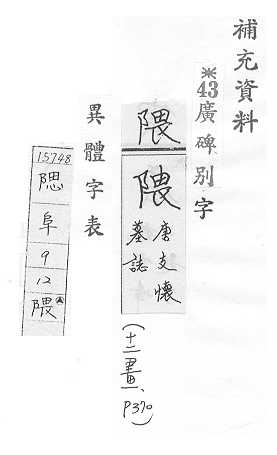 補充資料
※43廣碑別字
隈
隈
唐支懷
墓誌
(十二畫、
P370)
異體字表
15748
阜
9
12
隈